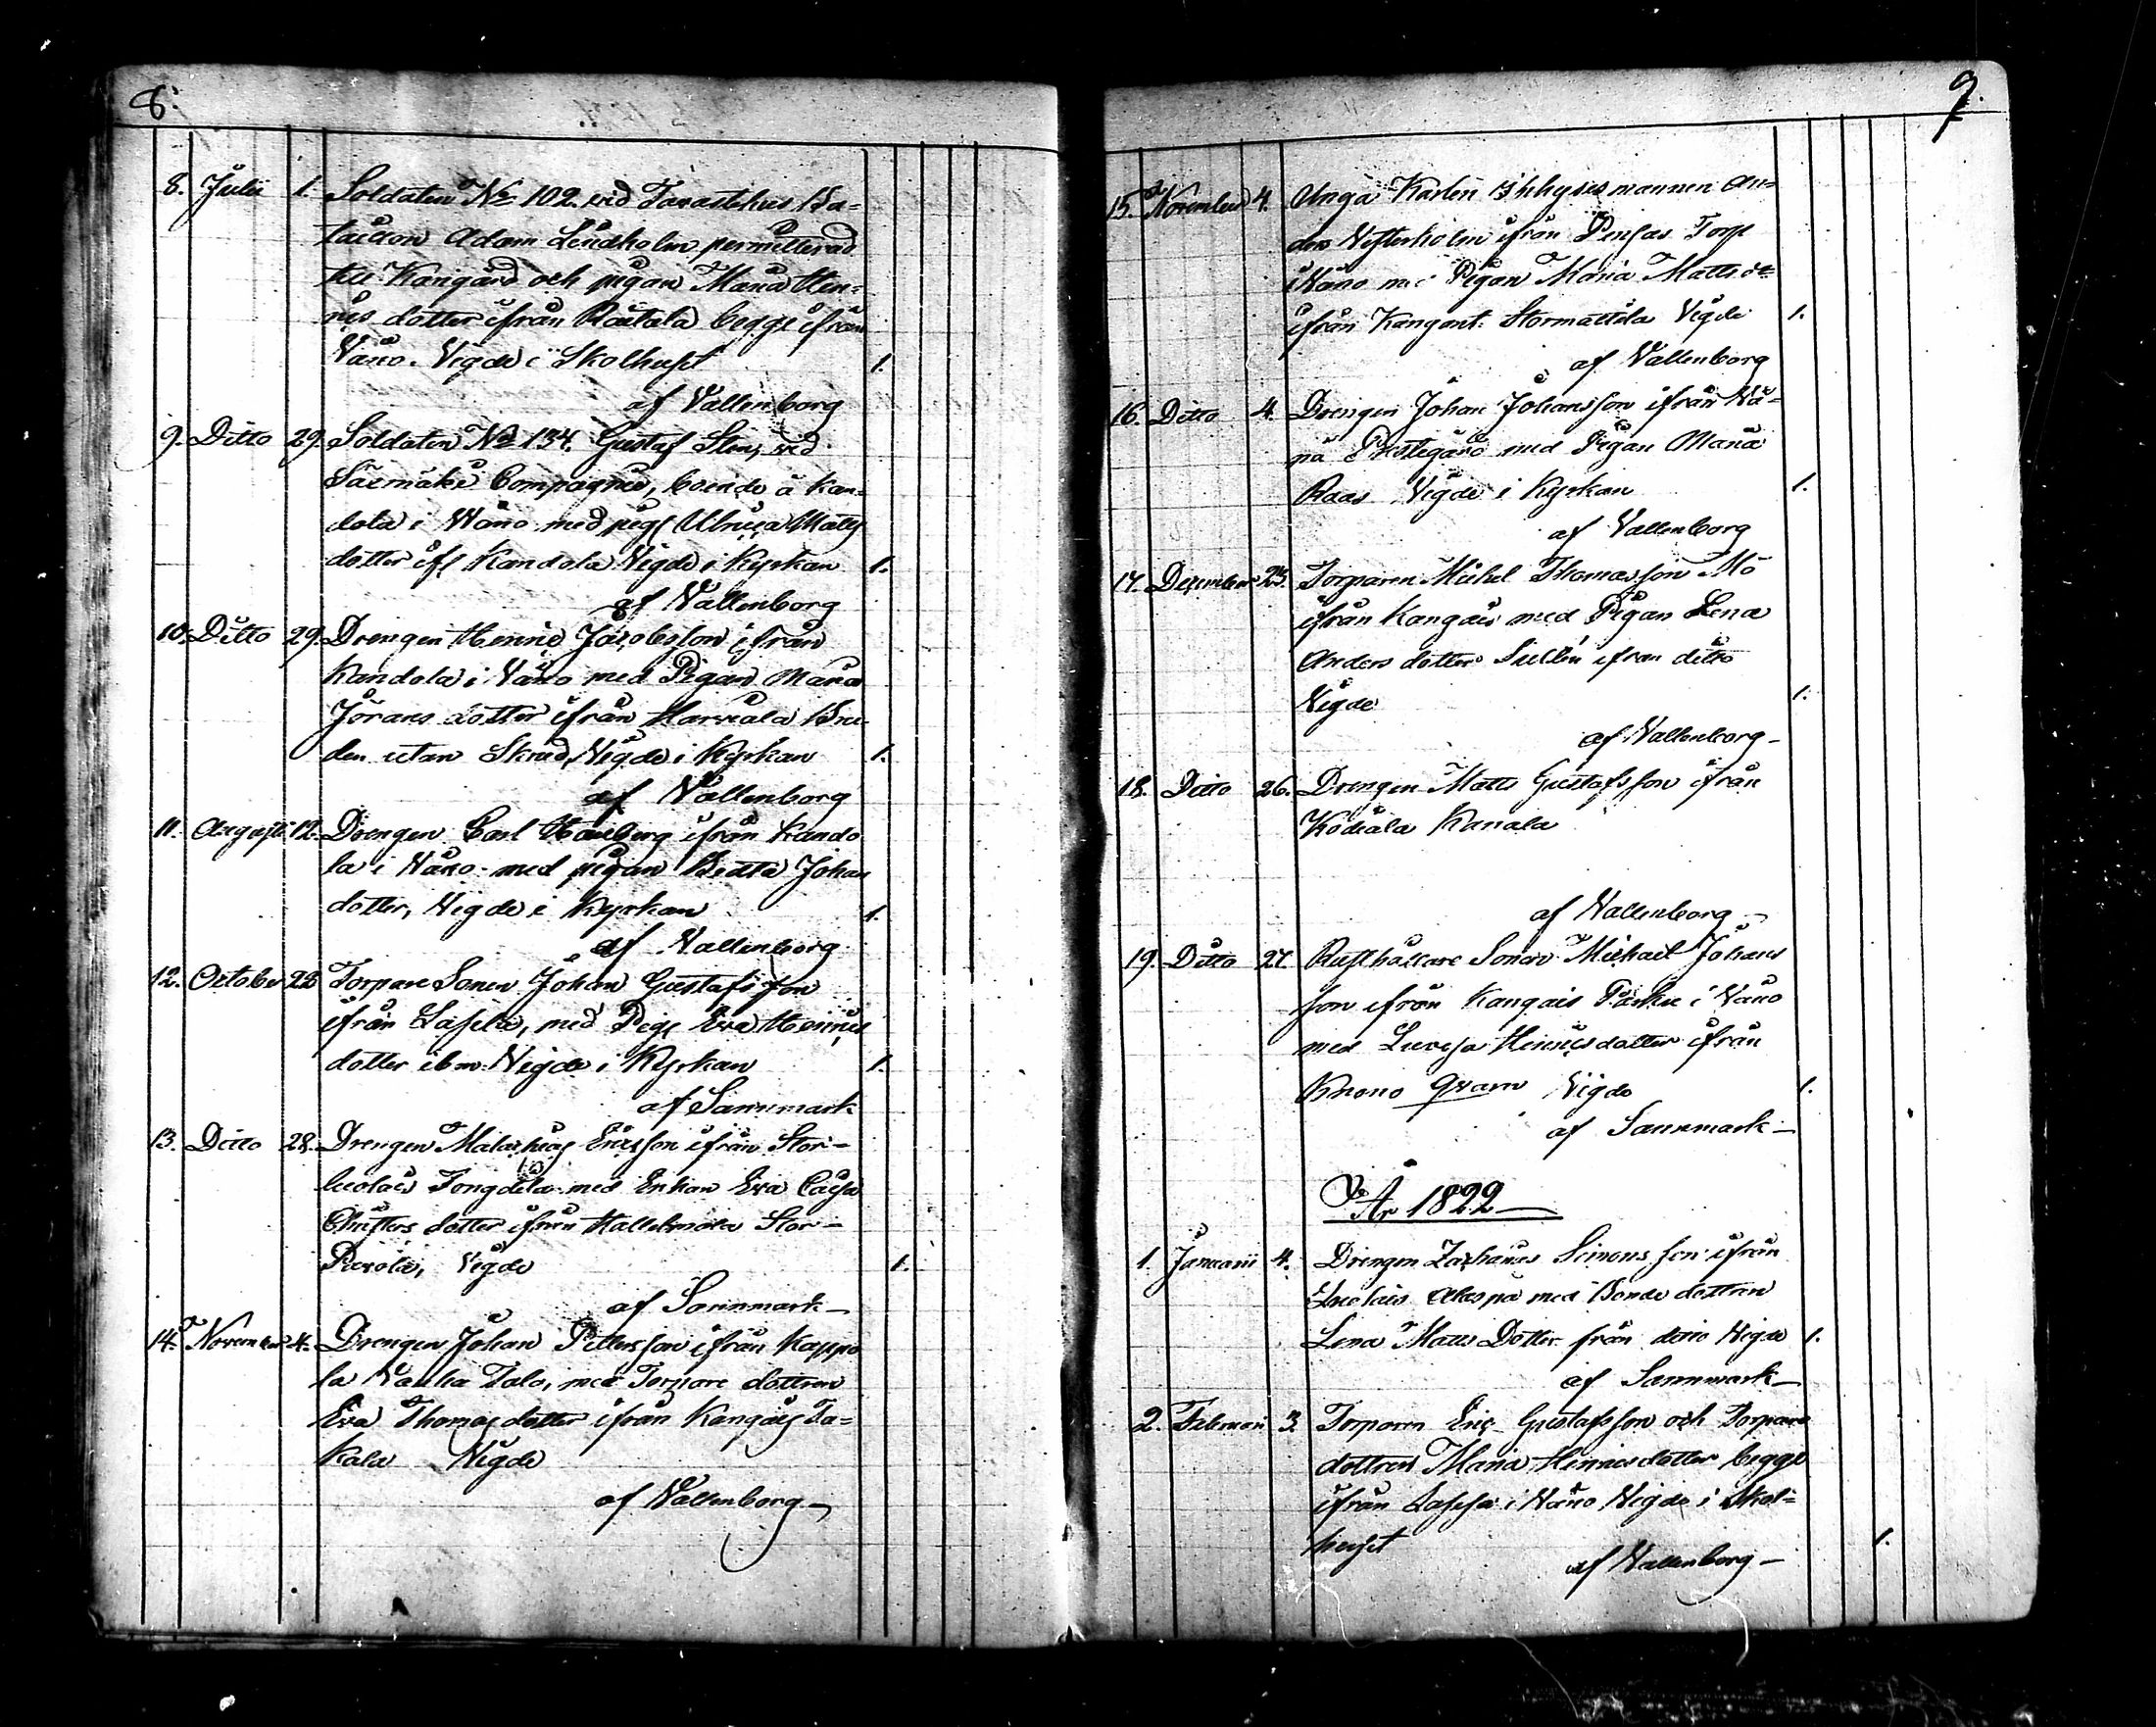 8.
8. Julii 1. Soldaten No 102. vid Tavastehus Ba=
taillon Adam Lindholm permitterad
till Karigård och pigan Maria Hen=
rics dotter ifrån Rastala begge ifrån
Våno. Vigde i Skolhuset 1.
af Wallenborg
9. Ditto 29. Soldaten No 134. Gustaf Sten, vid
Säämäki Compagnie, boende å Kan=
dola i Wåno med pig Ulrica Matts
dotter ifr Kandola Vigde i Kyrkan 1.
af Wallenborg
10. Ditto 29. Drengen Henric Jacobsson ifrån
Kandola i Våno med Pigan Maria
Jörans dotter ifrån Harviala Bru-
den utan Skrud, Vigde i Kyrkan 1.
af Wallenborg
11. Augusti 12. Drengen Carl Hamberg ifrån Kando
la i Wåno med pigan Beata Johan
dotter, Vigde i Kyrkan 1.
af Wallenborg
12. October 28 Torpare Sonen Johan Gustafsson
ifrån Lassila, med Pig Eva Henrics
dotter ibm Vigde i Kyrkan 1.
af Sannmark
13. Ditto 28. Drengen Matthias Ericsson ifrån Stor-
luolais Tongdila med Enkan Eva Caisa
Christers dotter ifrån Stor-
Parola, Vigde 1.
af Sannmark
14. November 4. Drengen Johan Pettersson ifrån Kappo
la Vanha Talo, med Torpare dottren
Eva Thomas dotter ifrån Kangais Ta=
kala Vigde
af Wallenborg
9.
15. November 4. Unga Karlen Inhysesmannen An=
ders Westerholm ifrån Torp
i Wåno med Pigan Maria Matts dr
ifrån Kangent. Stormattila Vigde 1.
af Wallenborg
16. Ditto 4. Drengen Johan Johansson ifrån Wå=
nå Prestegård med Pigan Maria
Raas Vigde i Kyrkan 1.
af Wallenborg
17. December 23. Torparen Michel Thomasson Mö
ifrån Kangais med Pigan Lena
Anders dotter Sullin ifrån ditto
Vigde 1.
af Wallenborg
18. Ditto 26. Drengen Matts Gustafsson ifrån
Kodiala Kanala
af Wallenborg
19. Ditto 27. Rusthållare Sonen Michael Johans
son ifrån Kangais i Våno
med Lovisa Henricsdotter ifrån
Kruno Qvarn Vigde 1.
af Sannmark
År 1822
1. Januarii 4. Drengen Zacharias Simonsson ifrån
Luolais Alaspä med Bonde dottren
Lena Matts Dotter från ditto Vigde 1.
af Sannmark
2. Februari 3. Torparen Eric Gustafsson och Torpare
dottren Maria Henricsdotter begge
ifrån Lassila i Våno Vigde i Skol=
huset 1.
af Wallenborg